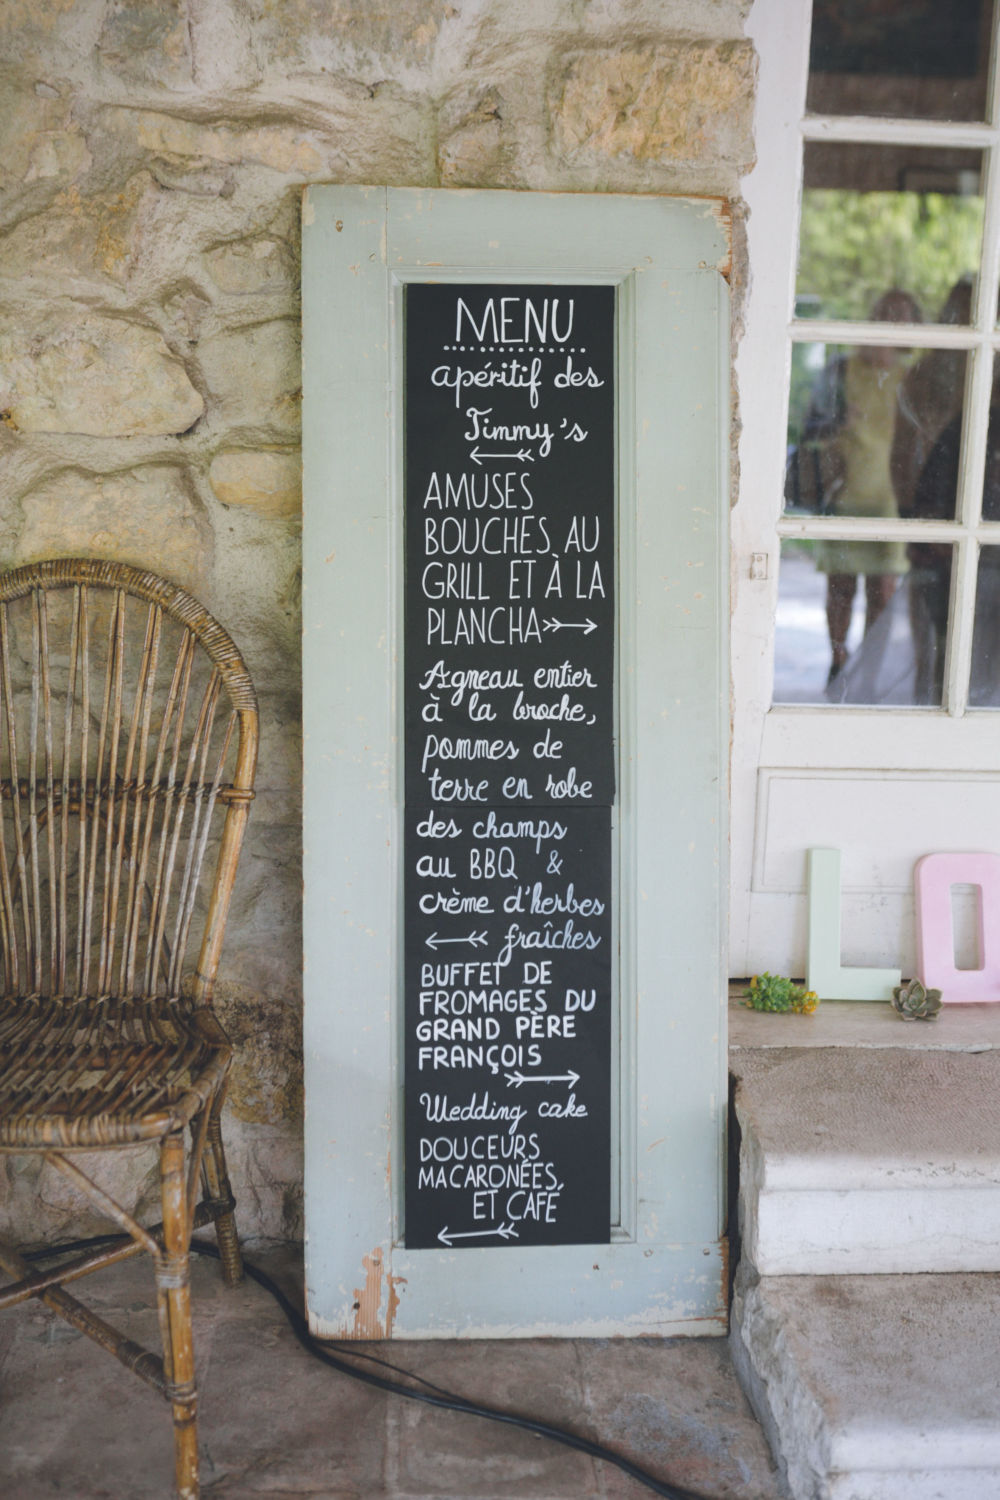 MENU
apéritif des
Timmy's
AMUSES
BOUCHES AU
GRILL ET À LA
PLANCHA
Agneau entier
à la broche,
pommes de
terre en robe
des champs
au BBQ &
crème d'herbes
fraîches
BUFFET DE
FROMAGES DU
GRAND PÈRE
FRANÇOIS
Wedding cake
DOUCEURS
MACARONÉES,
ET CAFÉ
LO